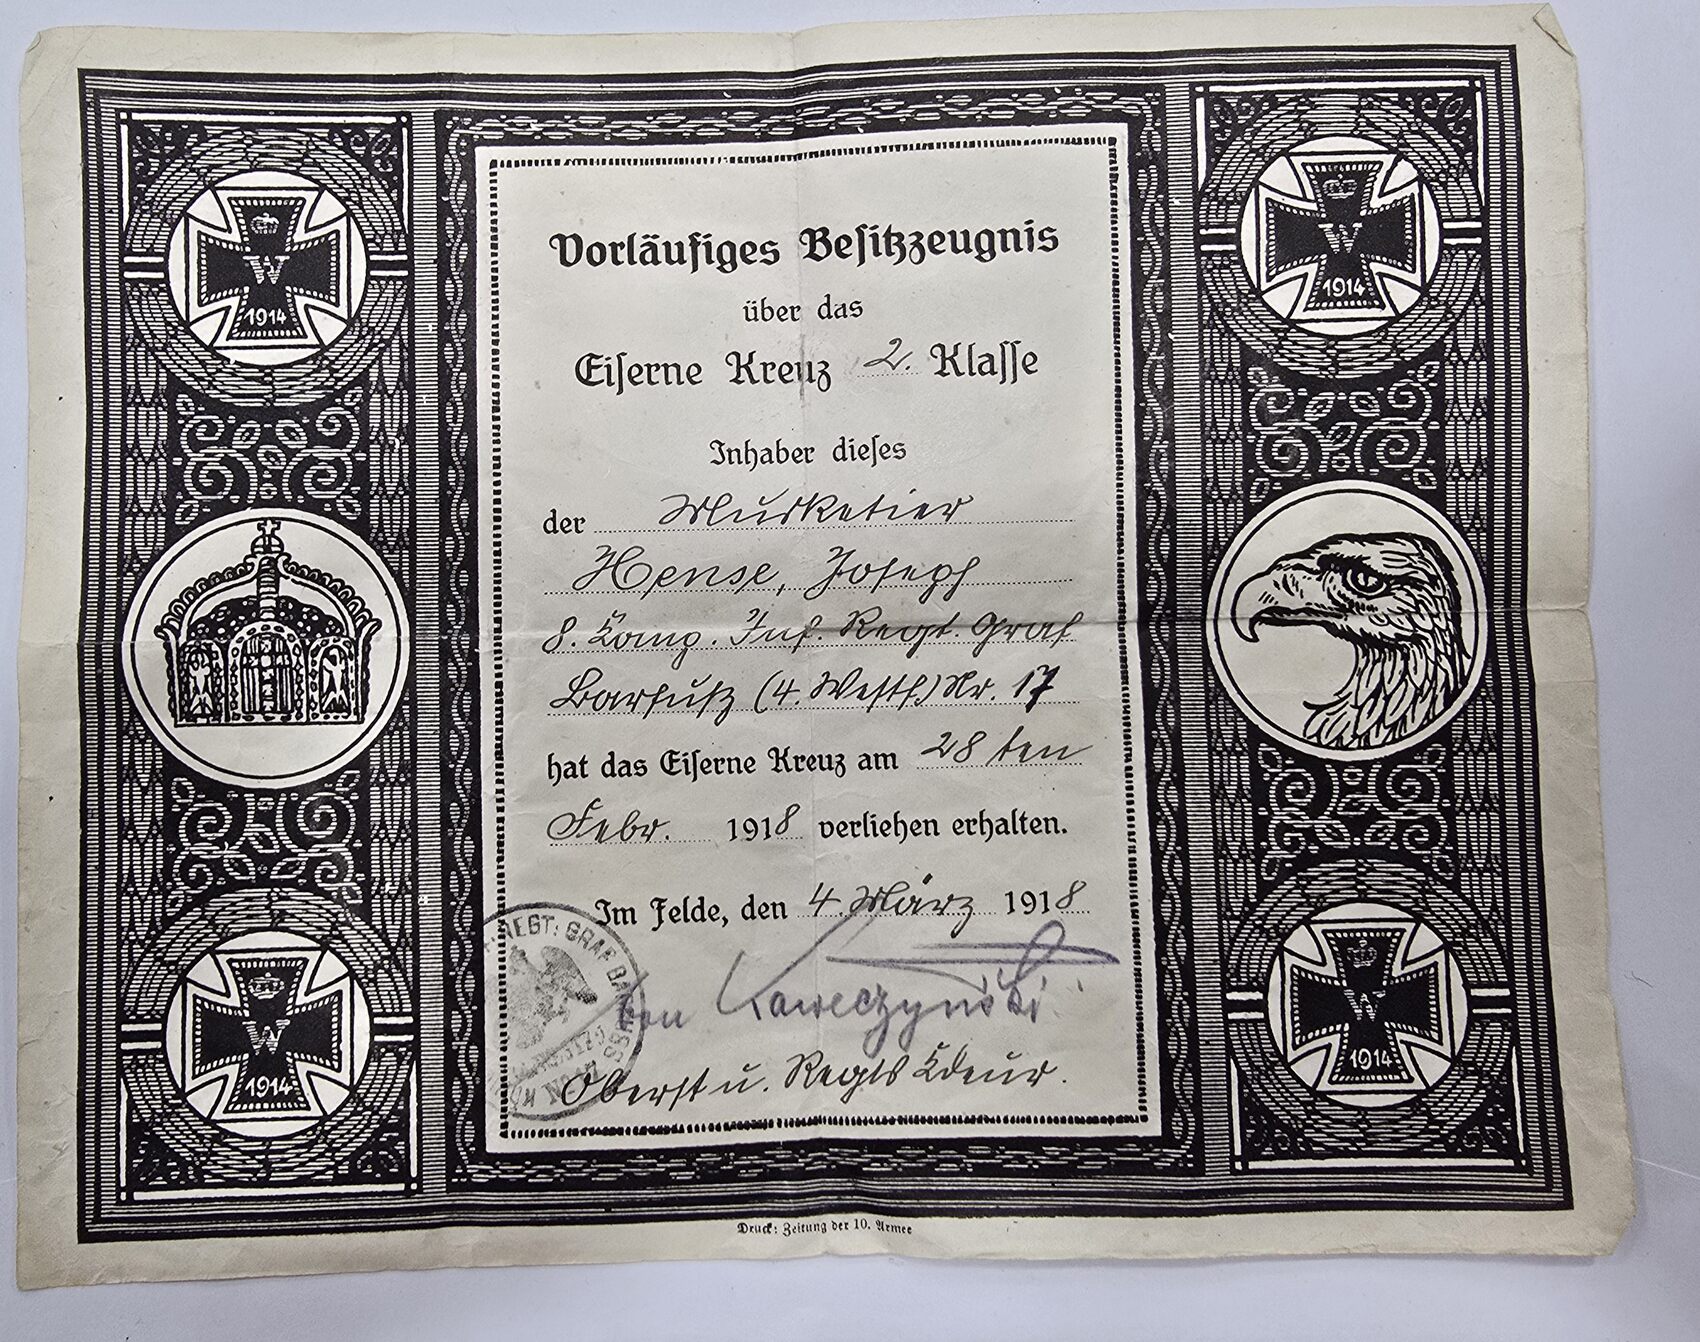 Vorläufiges Besitzzeugnis
über das
Eiserne Kreuz 2. Klasse
Inhaber dieses
der Musketier
Hense, Joseph
8. Komp. Inf. Regt. Graf
Barfuß (4. Westf.) Nr. 17
hat das Eiserne Kreuz am 28ten
Febr. 1918 verliehen erhalten.
Im Felde, den 4. März 1918
REGT: GRAF BARFUSS
von Kaweczynski
Oberst u. Regts Kdeur.
W
1914
W
1914
W
1914
W
1914
Druck: Zeitung der 10. Armee